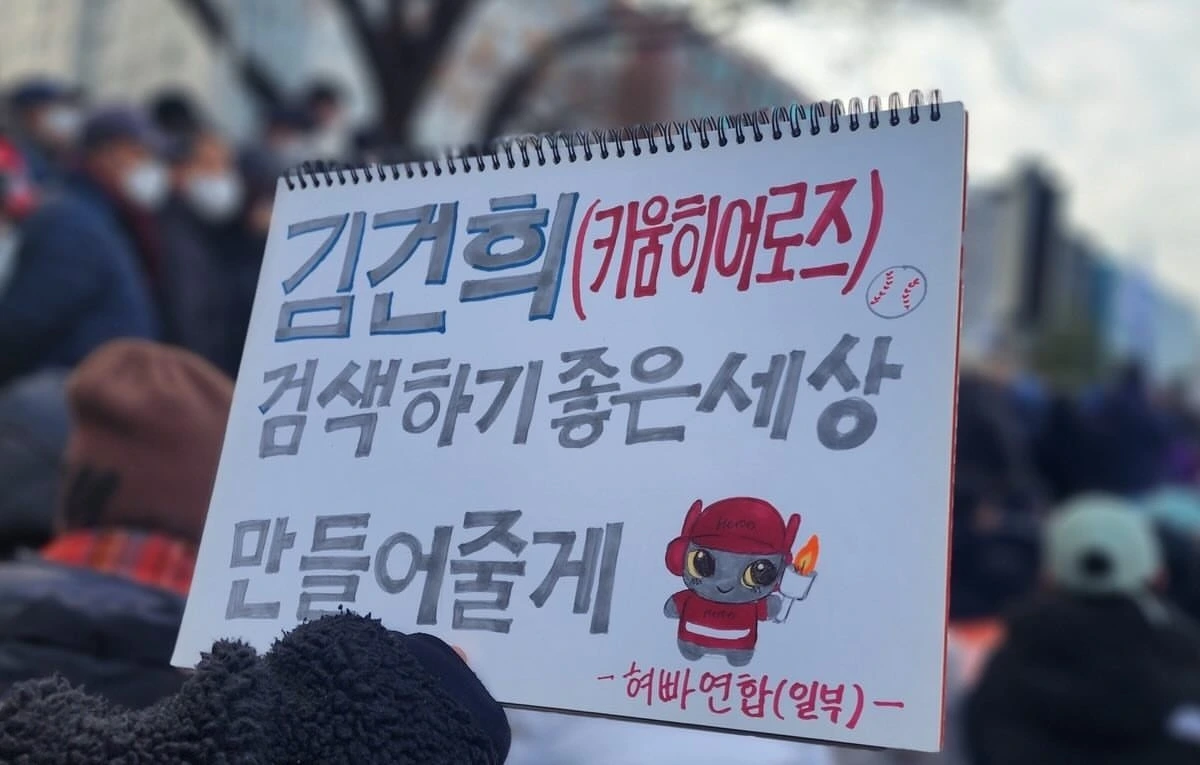 김건희(키움히어로즈)
검색하기 좋은 세상
만들어줄게
Hero
Hero
-혀빠연합(일부)-